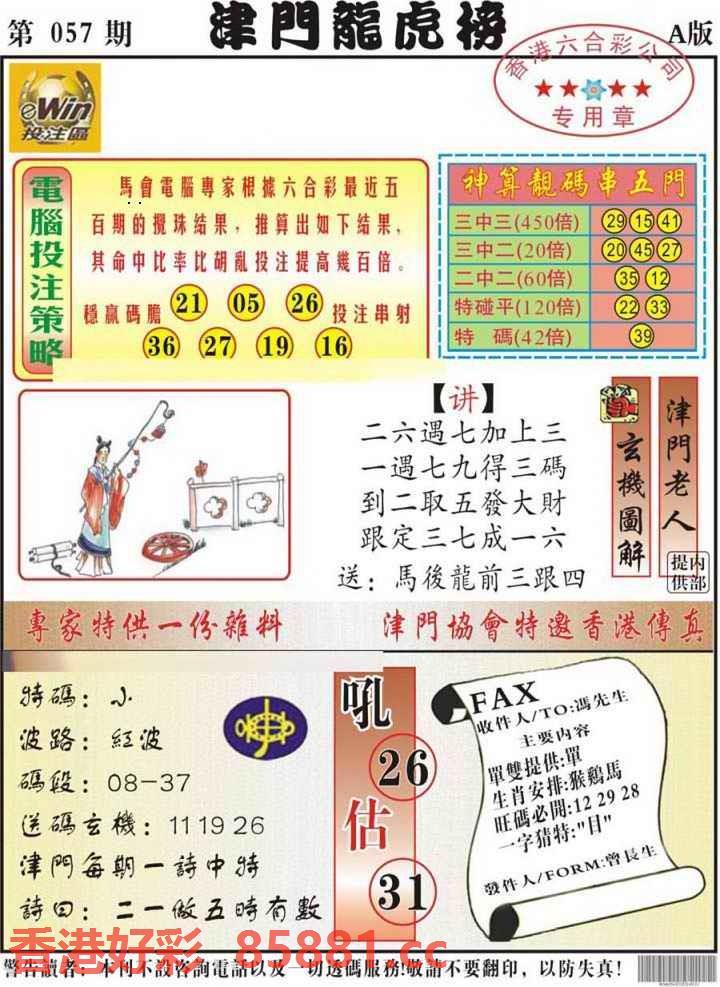 第 057 期
津門龍虎榜
A版
香港六合彩公司
专用章
eWin
投注區
電腦投注策略
馬會電腦專家根據六合彩最近五
百期的攪珠结果，推算出如下结果，
其命中比率比胡亂投注提高幾百倍。
穩贏碼膽 21 05 26 投注串射
36 27 19 16
神算靚碼串五門
三中三(450倍) 29 15 41
三中二(20倍) 20 45 27
二中二(60倍) 35 12
特碰平(120倍) 22 33
特 碼(42倍) 39
【讲】
二六遇七加上三
一遇七九得三碼
到二取五發大財
跟定三七成一六
送：馬後龍前三跟四
玄機圖解
津門老人
内部提供
專家特供一份雜料
津門協會特邀香港傳真
特碼：小
波路：紅波
碼段：08-37
送碼玄機：11 19 26
津門每期一詩中特
詩曰：二一做五時有數
吼
26
估
31
FAX
收件人/TO:馮先生
主要内容
單雙提供:單
生肖安排:猴鷄馬
旺碼必開:12 29 28
一字猜特:"目"
發件人/FORM:曾長生
香港好彩 85881.cc
警告讀者：本刊不設咨詢電話以及一切透碼服務!敬請不要翻印，以防失真!